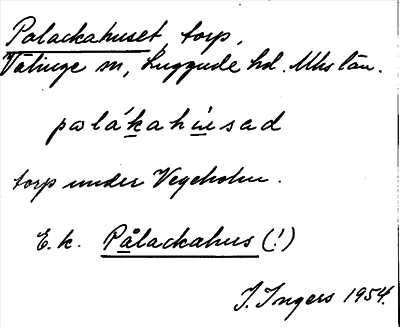 Palackahuset, torp,
Välinge sn, Luggude hd. Mhs län.
palákahúsad
torp under Vegeholm.
E. k. Pålackahus (!)
J. Ingers 1954.